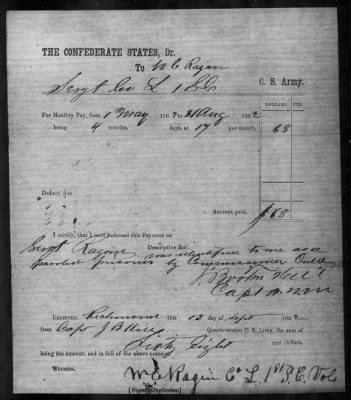 THE CONFEDERATE STATES, Dr.
To W C Ragan
Sergt Co L 1 S C C. S. Army.
DOLLARS. CTS.
For Monthly Pay, from 1 May 1862 to 31 Aug 1862
being 4 months, days, at 17 per month, 68
Deduct, due
Amount paid, $68
I certify, that I have endorsed this Payment on
Descriptive Roll.
Sergt was identified to me as a
paroled prisoner by
Capt
RECEIVED, Richmond this 18 day of Sept 1862
from Capt J B Quartermaster C. S. Army, the sum of
Sixty Eight Dollars,
being the amount, and in full of the above account.
WITNESS,
W C Ragin Co L 1st S. C. Vols
[Signed Duplicates.]